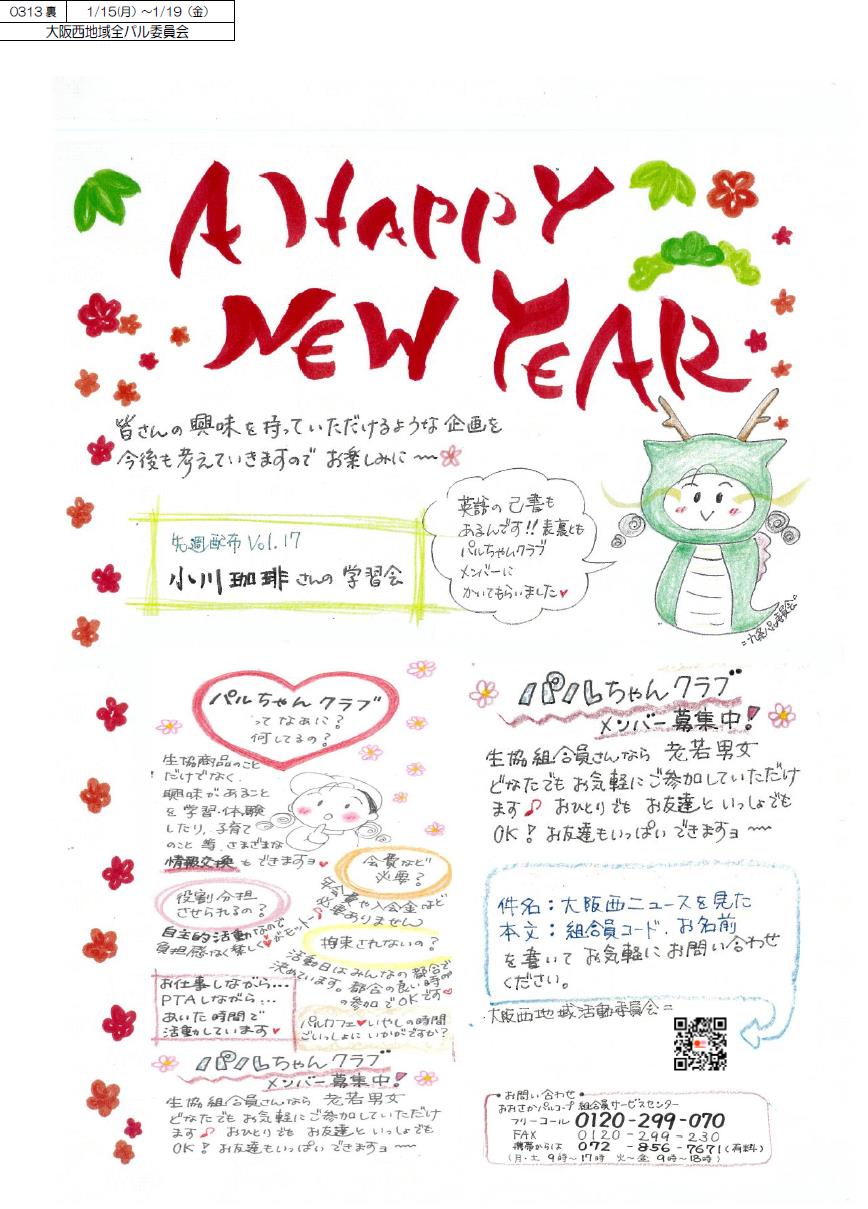 0313 裏
1/15(月) ~1/19 (金)
大阪西地域全パル委員会
A HAPPY
NEW YEAR
皆さんの興味を持っていただけるような企画を
今後も考えていきますので お楽しみに〜
先週配布 Vol.17
小川珈琲さんの学習会
英語の己書も
あるんです!! 表裏とも
パルちゃんクラブ
メンバーに
かいてもらいました♥
パルちゃんクラブ
ってなあに?
何してるの?
生協商品のこと
だけでなく、
興味があること
を学習・体験
したり、子育て
のこと等、さまざまな
情報交換もできますョ♥
会費など
必要?
年会費や入会金など
必要ありません
役割分担
させられるの?
自主的活動なので
負担感なく楽しく♥がモットー♪
拘束されないの?
活動日はみんなの都合で
決めています。都合の良い時のみ
の参加でOKです♥
お仕事しながら…
PTAしながら…
あいた時間で
活動しています♥
パルカフェ♥いやしの時間
ごいっしょにいかがですか?
パルちゃんクラブ
メンバー募集中!
生協組合員さんなら 老若男女
どなたでもお気軽にご参加していただけ
ます♪ おひとりでも お友達といっしょでも
OK! お友達もいっぱいできますョ〜
パルちゃんクラブ
メンバー募集中!
生協組合員さんなら 老若男女
どなたでもお気軽にご参加していただけ
ます♪ おひとりでも お友達といっしょでも
OK! お友達もいっぱいできますョ〜
件名:大阪西ニュースを見た
本文:組合員コード、お名前
を書いて お気軽にお問い合わせ
ください。
大阪西地域活動委員会=
・お問い合わせ・
おおさかパルコープ 組合員サービスセンター
フリーコール 0120-299-070
FAX 0120-299-230
携帯からは 072-856-7671(有料)
(月・土 9時〜17時 火〜金 9時〜18時)